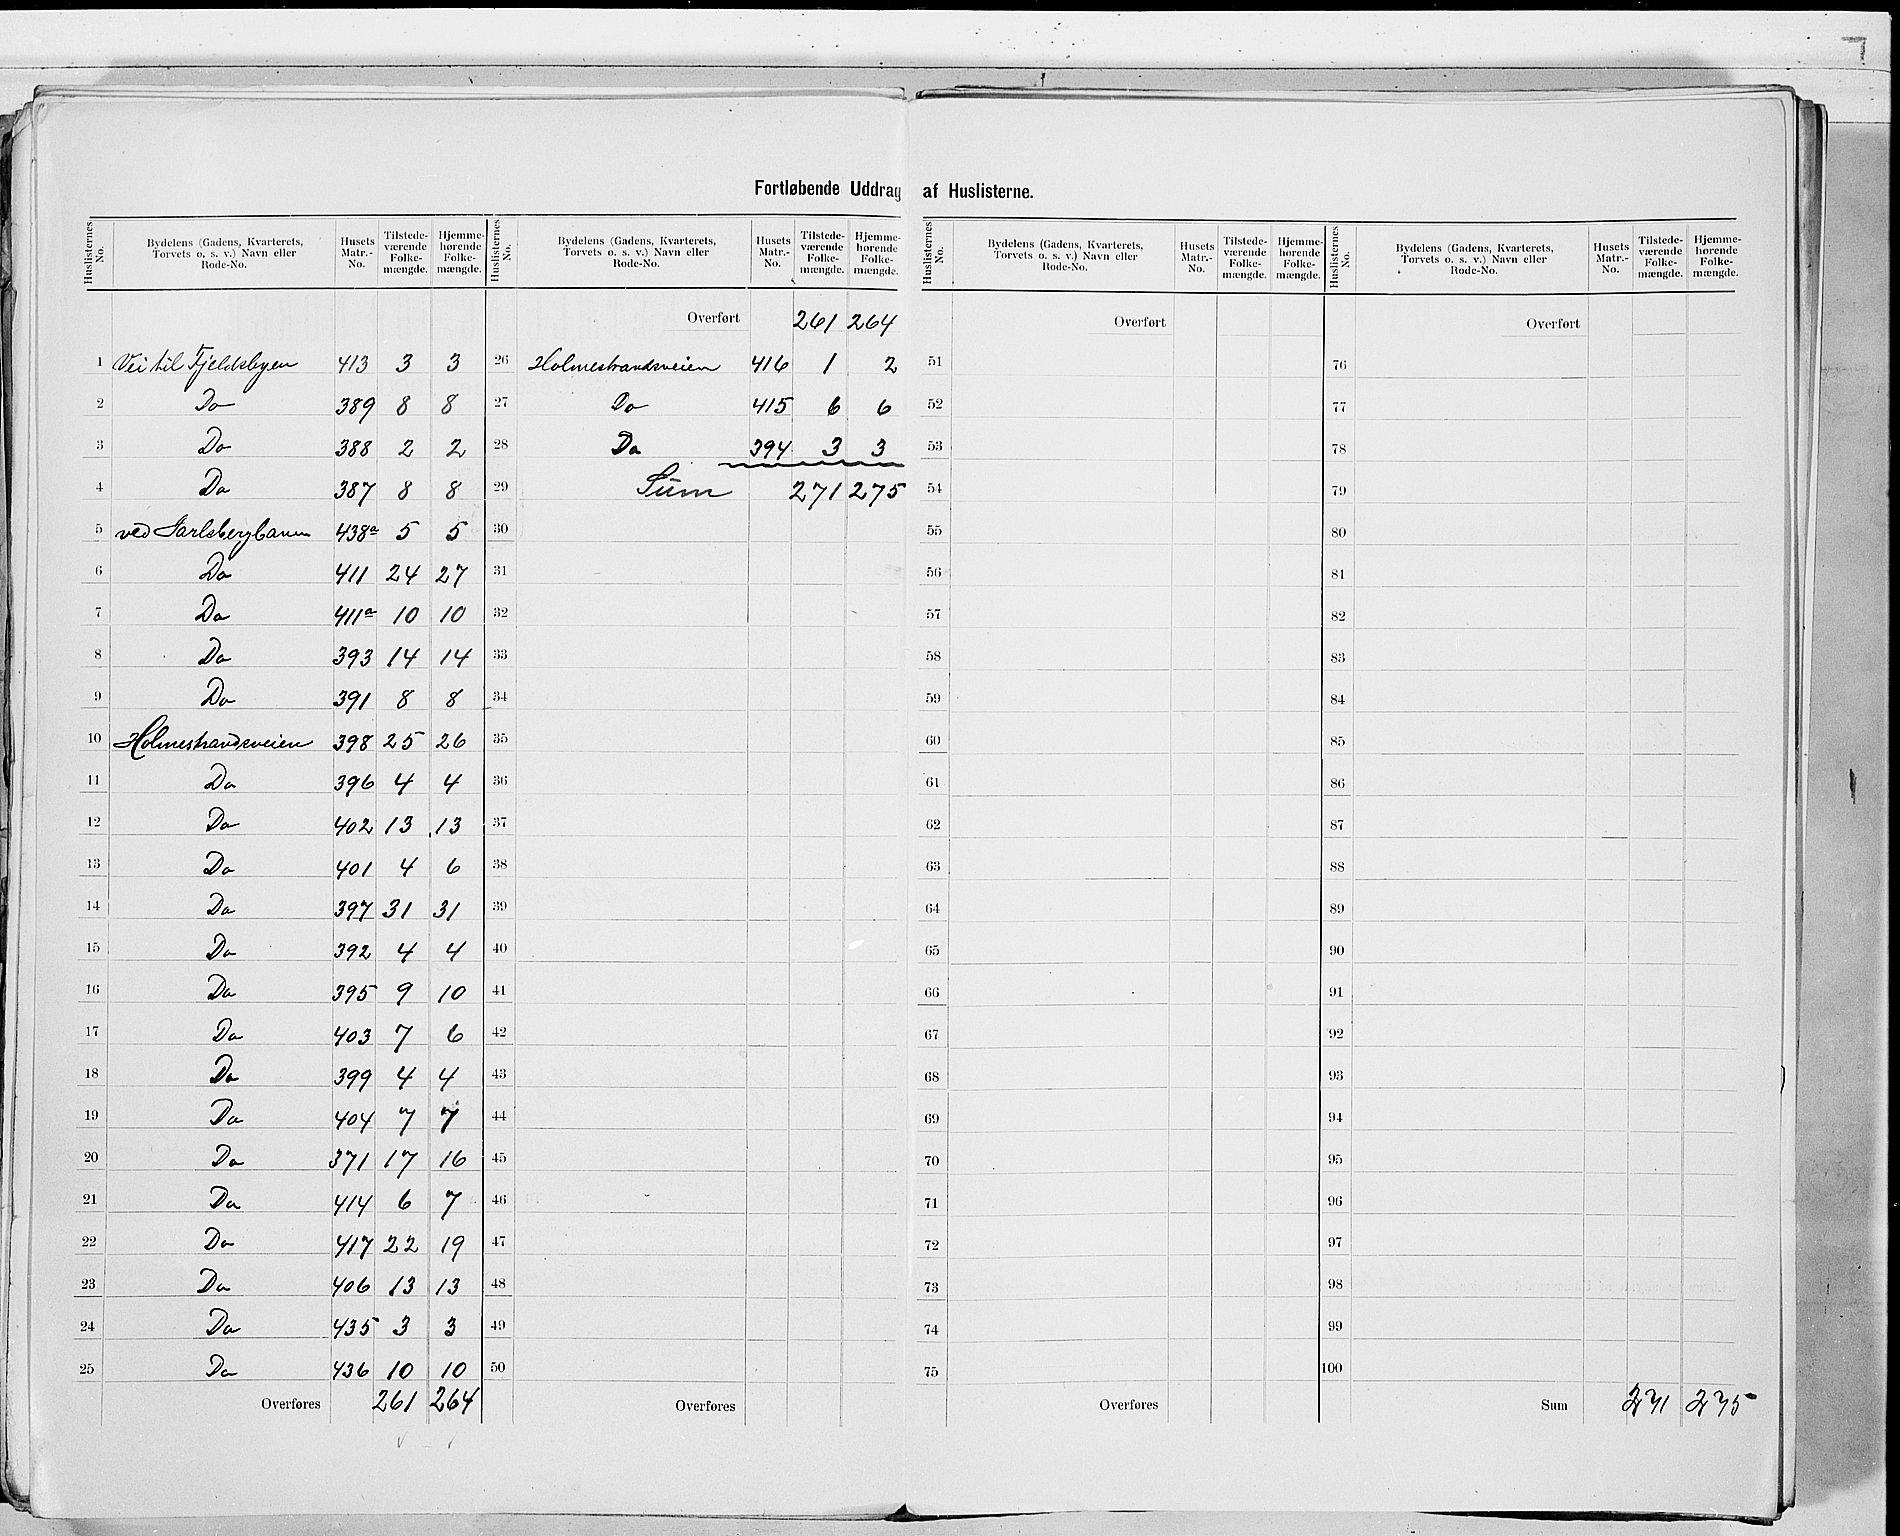 Fortløbende Uddrag af Huslisterne.
Huslisternes No. Bydelens (Gadens, Kvarterets, Torvets o. s. v.) Navn eller Rode-No. Husets Matr.-No. Tilstedeværende Folkemængde. Hjemmehørende Folkemængde.
1 Vei til Fjeldsbyen 413 3 3
2 Do 389 8 8
3 Do 388 2 2
4 Do 387 8 8
5 ved Jarlsbergbanen 438a 5 5
6 Do 411 24 27
7 Do 411a 10 10
8 Do 393 14 14
9 Do 391 8 8
10 Holmestrandsveien 398 25 26
11 Do 396 4 4
12 Do 402 13 13
13 Do 401 4 6
14 Do 397 31 31
15 Do 392 4 4
16 Do 395 9 10
17 Do 403 7 6
18 Do 399 4 4
19 Do 404 7 7
20 Do 371 17 16
21 Do 414 6 7
22 Do 417 22 19
23 Do 406 13 13
24 Do 435 3 3
25 Do 436 10 10
Overføres 261 264
Huslisternes No. Bydelens (Gadens, Kvarterets, Torvets o. s. v.) Navn eller Rode-No. Husets Matr.-No. Tilstedeværende Folkemængde. Hjemmehørende Folkemængde.
Overført 261 264
26 Holmestrandsveien 416 1 2
27 Do 415 6 6
28 Do 394 3 3
29 Sum 271 275
30
31
32
33
34
35
36
37
38
39
40
41
42
43
44
45
46
47
48
49
50
Overføres
Huslisternes No. Bydelens (Gadens, Kvarterets, Torvets o. s. v.) Navn eller Rode-No. Husets Matr.-No. Tilstedeværende Folkemængde. Hjemmehørende Folkemængde.
Overført
51
52
53
54
55
56
57
58
59
60
61
62
63
64
65
66
67
68
69
70
71
72
73
74
75
Overføres
Huslisternes No. Bydelens (Gadens, Kvarterets, Torvets o. s. v.) Navn eller Rode-No. Husets Matr.-No. Tilstedeværende Folkemængde. Hjemmehørende Folkemængde.
Overført
76
77
78
79
80
81
82
83
84
85
86
87
88
89
90
91
92
93
94
95
96
97
98
99
100
Sum 271 275